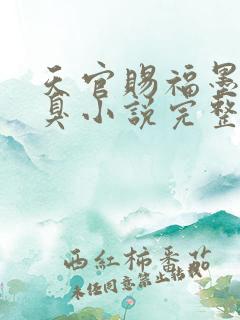 天官賜福墨
真小説完整
西紅柿番茄
未经同意禁止转载